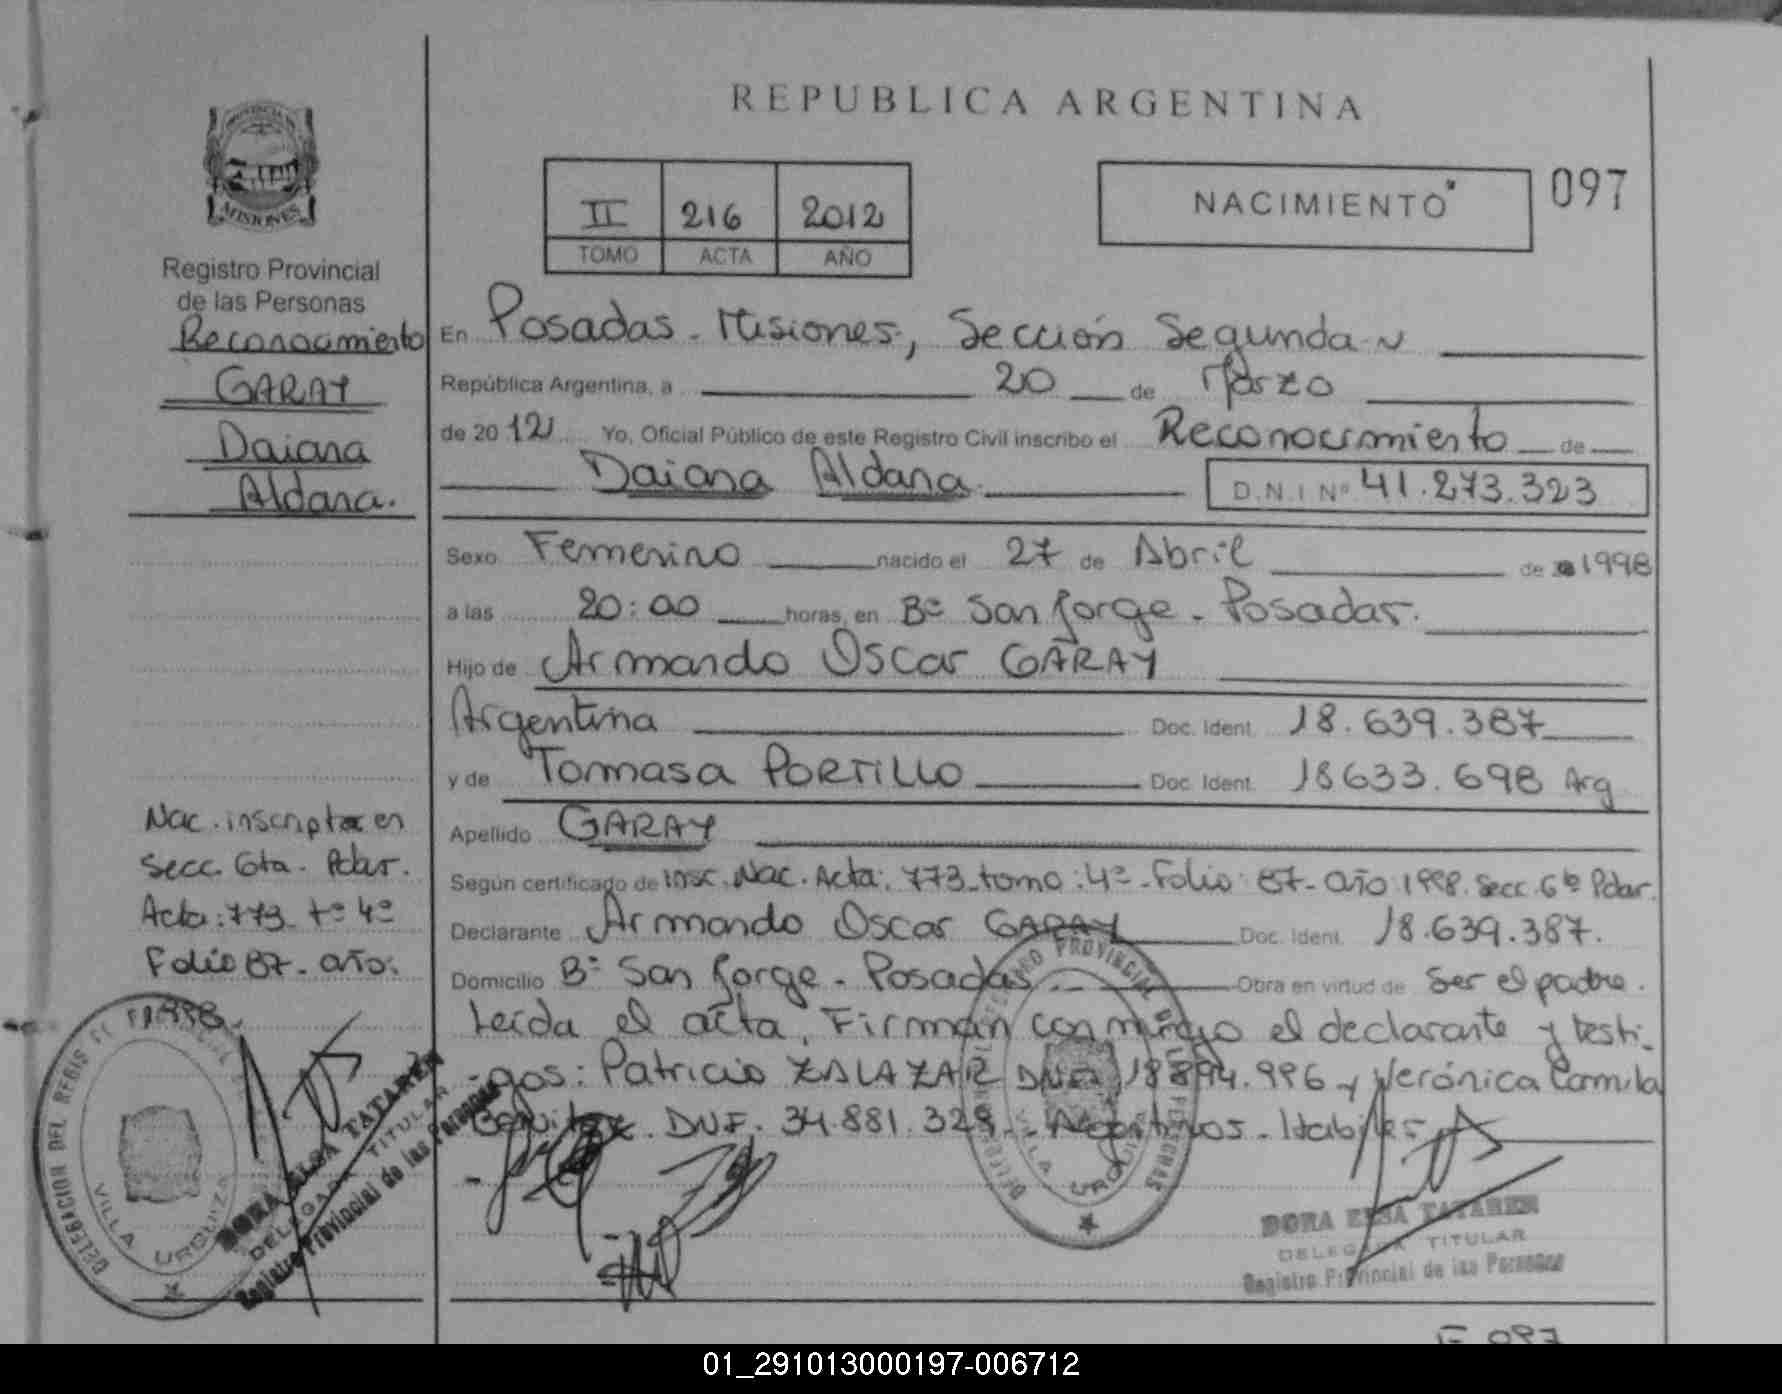 REPUBLICA ARGENTINA
PROVINCIA DE
MISIONES
II 216 2012
TOMO ACTA AÑO
NACIMIENTO
097
Registro Provincial
de las Personas
Reconocimiento
GARAY
Daiana
Aldana.
En Posadas - Misiones, Sección Segunda
República Argentina, a 20 de Marzo
de 2012 Yo, Oficial Público de este Registro Civil inscribo el Reconocimiento de
Daiana Aldana. D.N.I Nº 41.273.323
Sexo Femenino nacido el 27 de Abril de 1998
a las 20:00 horas, en Bº San Jorge - Posadas.
Hijo de Armando Oscar GARAY
Argentina Doc. Ident. 18.639.387
y de Tomasa PORTILLO Doc. Ident. 18633.698 Arg
Apellido GARAY
Según certificado de insc. Nac. Acta: 773 tomo: 4º - Folio: 87 - año 1998. Secc. 6ta Pdas.
Declarante Armando Oscar GARAY Doc. Ident. 18.639.387.
Domicilio Bº San Jorge - Posadas. Obra en virtud de Ser el padre.
Leída el acta, Firman conmigo el declarante y testi-
-gos: Patricio ZALAZAR DNI 18894.996 y Verónica Camila
DNI. 34.881.329. - Argentinos - Habiles
Nac. inscripta en
Secc. 6ta. Pdas.
Acta: 773 tº 4º
Folio 87 - año:
1998.
DELEGACION DEL REGIS
VILLA URQUIZA
DORA ELSA TATAREN
DELEGADA TITULAR
Registro Provincial de las Personas
PROVINCIAL DE LAS PERSONAS
VILLA URQUIZA
DORA ELSA TATAREN
DELEGADA TITULAR
Registro Provincial de las Personas
F 097
01_291013000197-006712